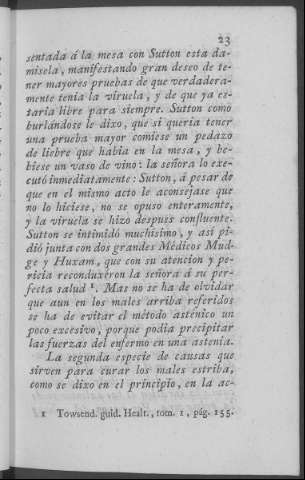 23
sentada á la mesa con Sutton esta da-
misela, manifestando gran deseo de te-
ner mayores pruebas de que verdadera-
mente tenia la viruela, y de que ya es-
taria libre para siempre. Sutton como
burlándose le dixo, que si queria tener
una prueba mayor comiese un pedazo
de liebre que habia en la mesa, y be-
biese un vaso de vino: la señora lo exe-
cutó inmediatamente: Sutton, á pesar de
que en el mismo acto le aconsejase que
no lo hiciese, no se opuso enteramente,
y la viruela se hizo despues confluente.
Sutton se intimidó muchísimo, y así pi-
dió junta con dos grandes Médicos Mud-
ge y Huxam, que con su atencion y pe-
ricia reconduxéron la señora á su per-
fecta salud 1. Mas no se ha de olvidar
que aun en los males arriba referidos
se ha de evitar el método asténico un
poco excesivo, porque podia precipitar
las fuerzas del enfermo en una astenia.
La segunda especie de causas que
sirven para curar los males estriba,
como se dixo en el principio, en la ac-
1 Towsend. guid. Healt., tom. 1, pág. 155.